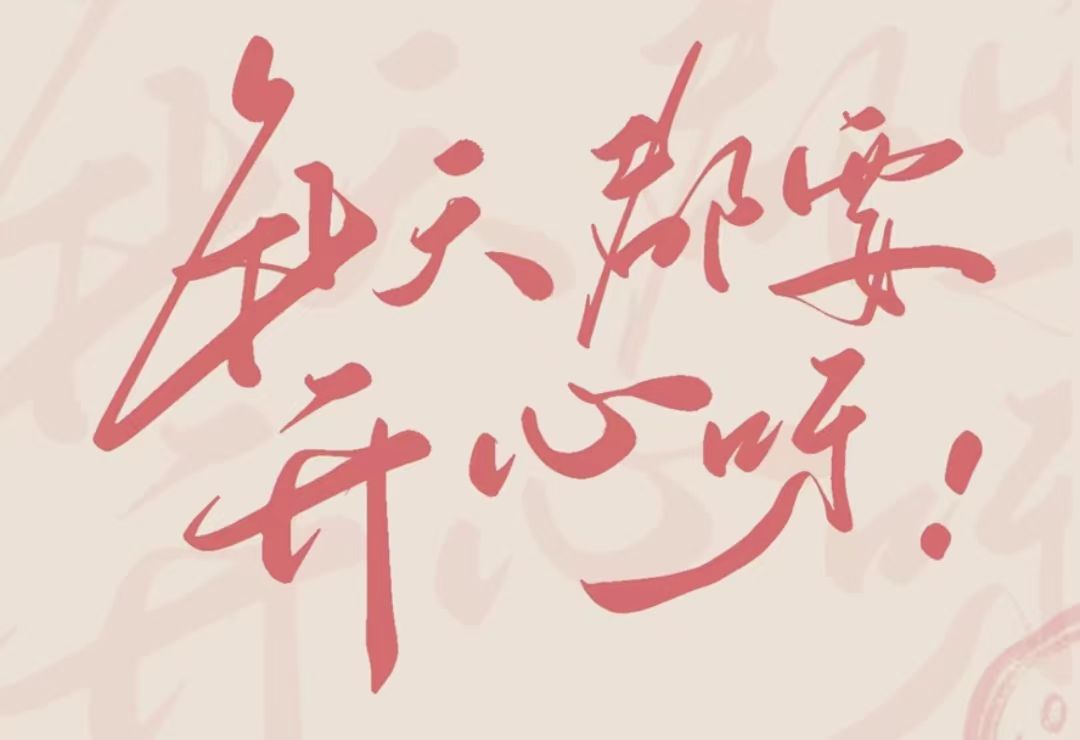 每天都要
开心呀！